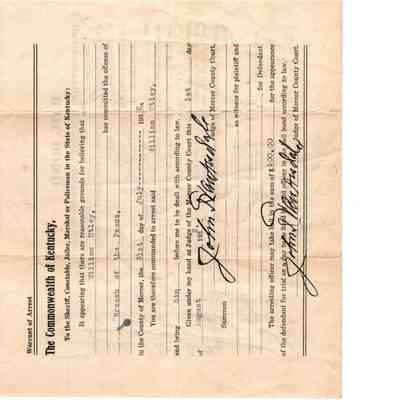 Warrant of Arrest
The Commonwealth of Kentucky,
To the Sheriff, Constable, Jailer, Marshal or Policeman in the State of Kentucky:
It appearing that there are reasonable grounds for believing that
Utley,
has committed the offense of
Breach of the Peace,
in the County of Mercer, the 31st day of July 190
You are therefore commanded to arrest said Utley,
and bring him before me to be dealt with according to law.
Given under my hand as Judge of the Mercer County Court this 1st day
of August 190
John Judge of Mercer County Court.
Summon as witness for plaintiff and
for Defendant.
The arresting officer may take bail in the sum of $100.00 for the appearance
of the defendant for trial on a bond according to law.
John Judge of Mercer County Court.